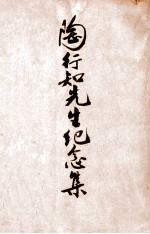 陶行知先生纪念集